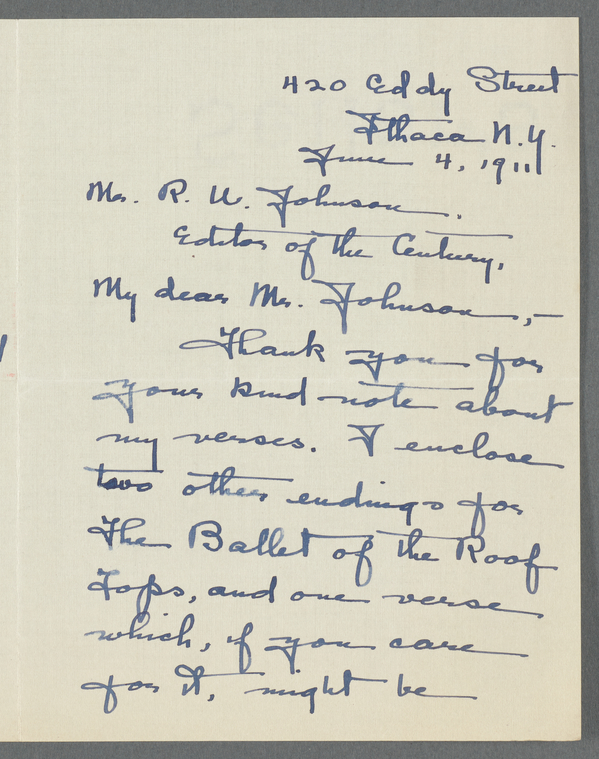 420 Eddy Street
Ithaca N.Y.
June 4, 1911
Mr. R. U. Johnson.
Editor of the Century,
My dear Mr. Johnson,—
Thank you for
your kind note about
my verses. I enclose
two other endings for
The Ballet of the Roof
Tops, and one verse
which, if you care
for it, might be